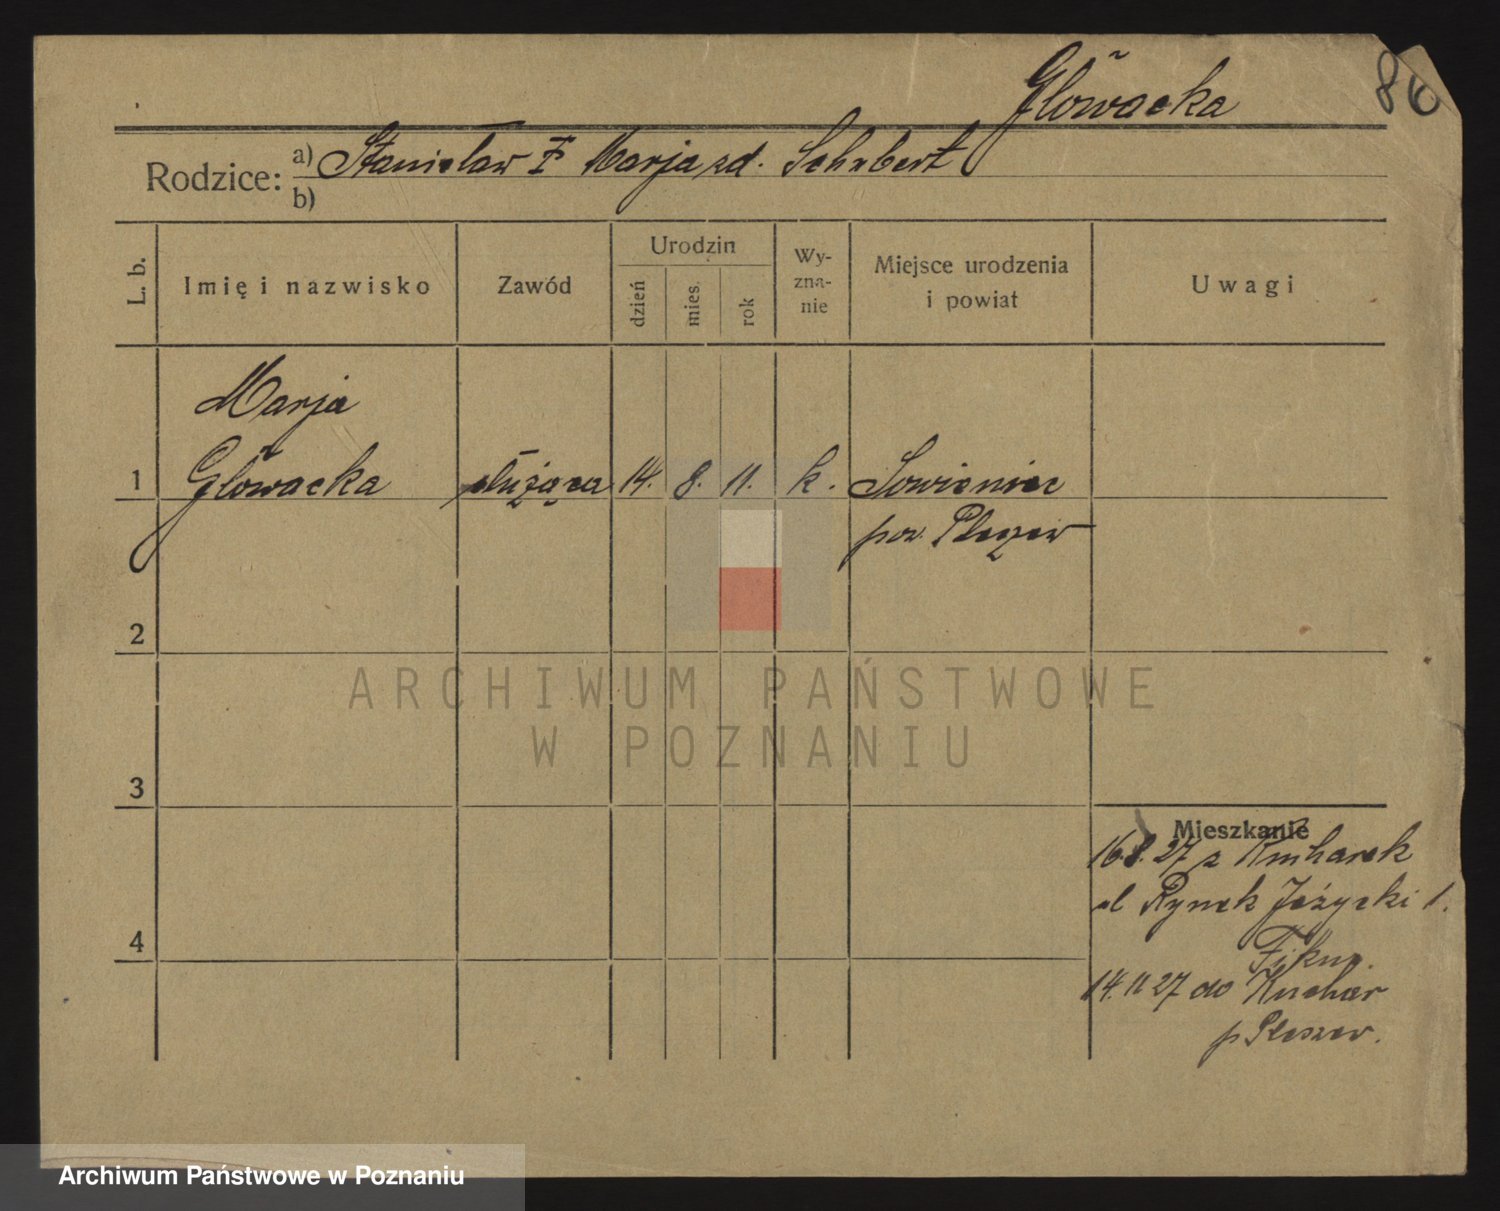 Głowacka
86
Rodzice: a) Stanisław I Marja zd. Schubert
b)
L. b.
Imię i nazwisko
Zawód
Urodzin
dzień
mies.
rok
Wy-
zna-
nie
Miejsce urodzenia
i powiat
Uwagi
Marja
1 Głowacka służąca 14. 8. 11. k. Sowieniec
pow. Pleszew
2
3
4
Mieszkanie
16.8.27 z Kucharek
ul Rynek Jeżycki 1.
14.11 27 do Kuchar
p Pleszew.
ARCHIWUM PAŃSTWOWE
W POZNANIU
Archiwum Państwowe w Poznaniu